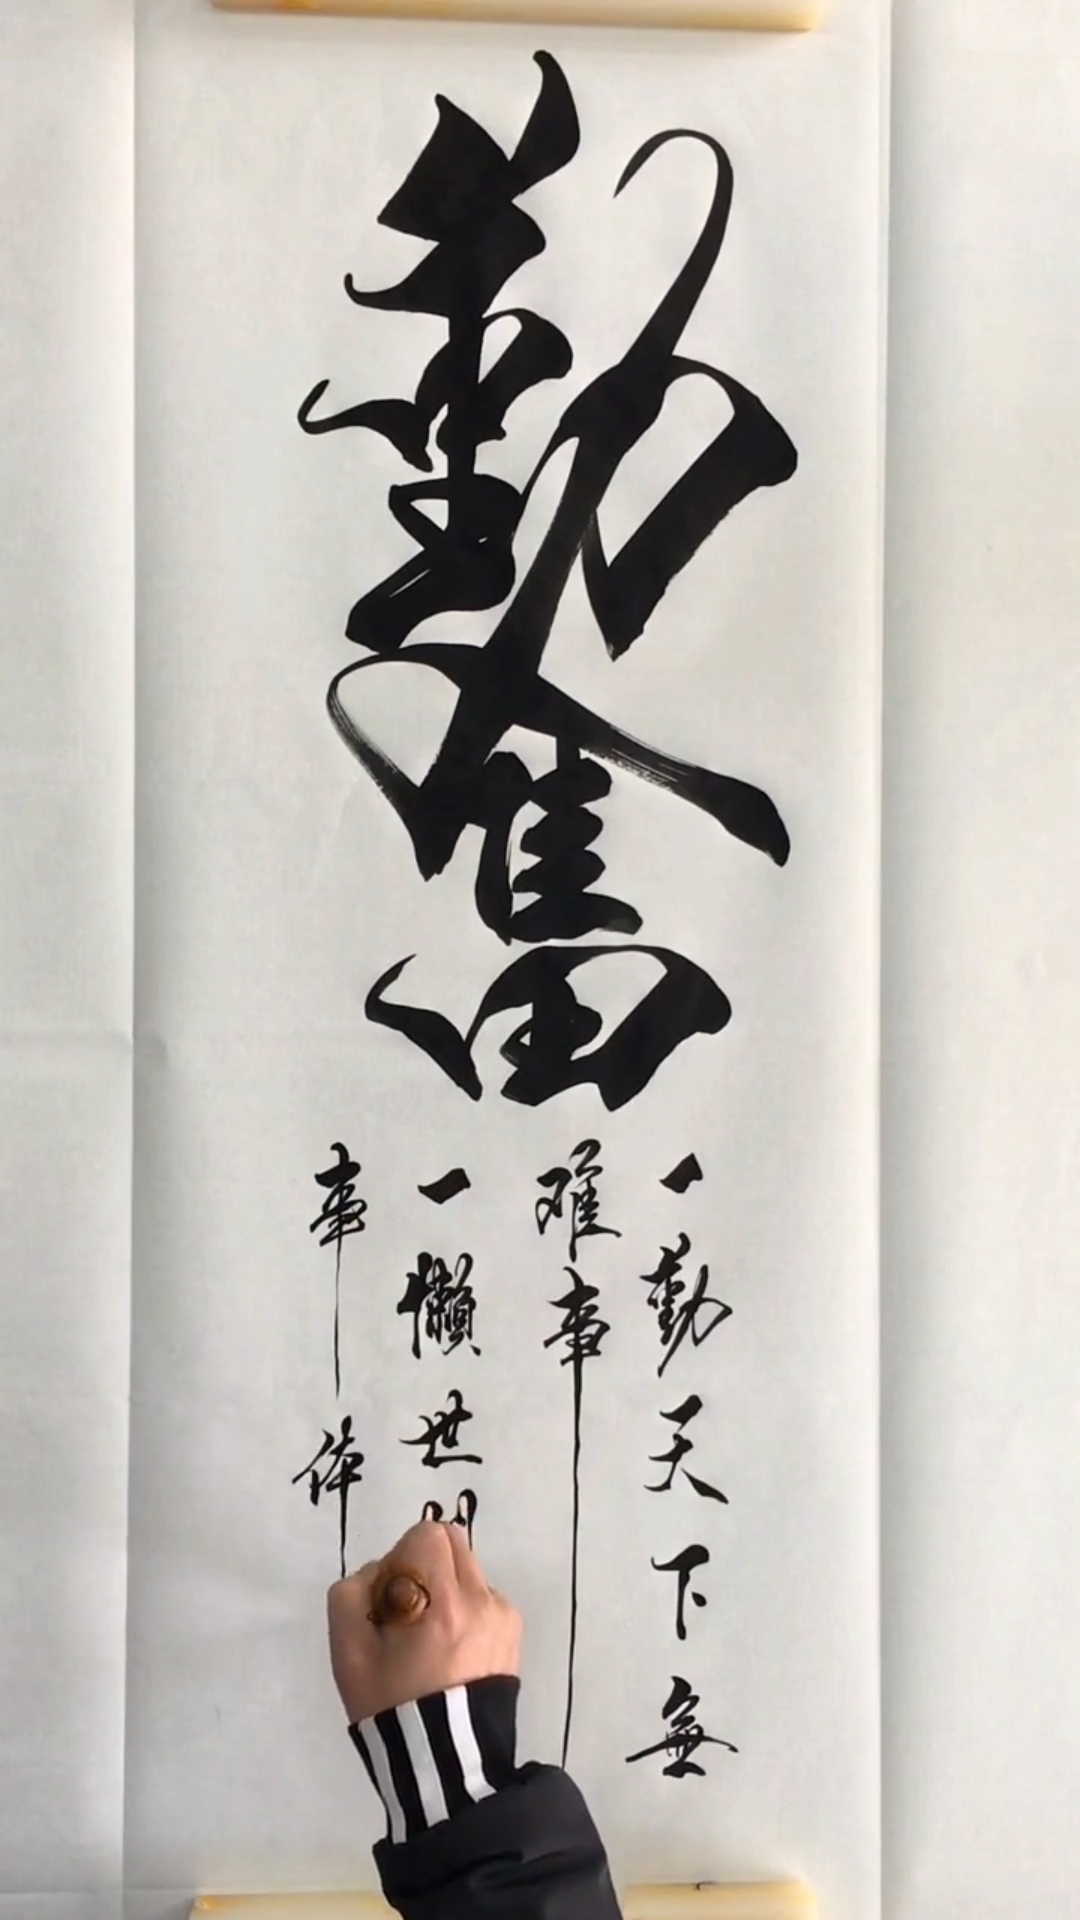 勤奮
一勤天下無
难事
一懶世
事休